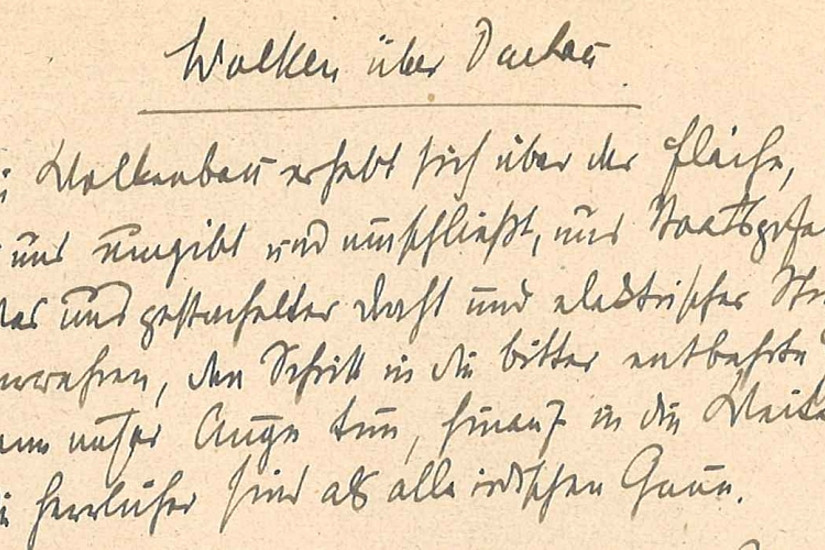 Wolken über Dachau
Wolkenbau erhebt sich über der Fläche,
uns umgibt und umschließt, uns Staatsgefa
uns gestachelter Draht und elektrischer Str
verwehren, den Schritt in die bitter entbehrte
unser Auge tun, hinauf in die Weite
herrlicher sind als alle irdischen Gaue.